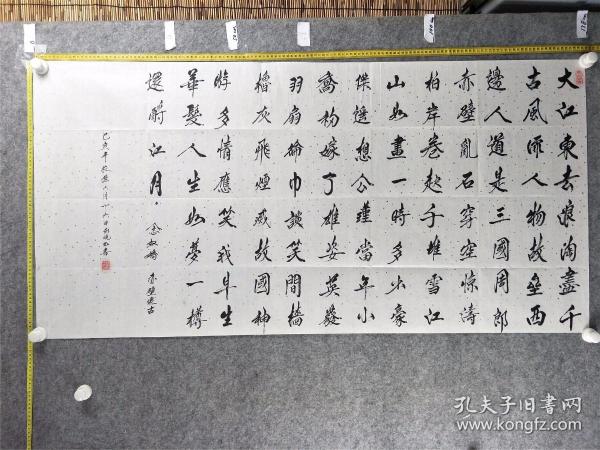 大江東去浪淘盡千
古風流人物故壘西
邊人道是三國周郎
赤壁亂石穿空驚濤
拍岸卷起千堆雪江
山如畫一時多少豪
傑遙想公瑾當年小
喬初嫁了雄姿英發
羽扇綸巾談笑間檣
櫓灰飛煙滅故國神
游多情應笑我早生
華髮人生如夢一樽
還酹江月
念奴嬌 赤壁懷古
己亥年
孔夫子旧書网
www.kongfz.com